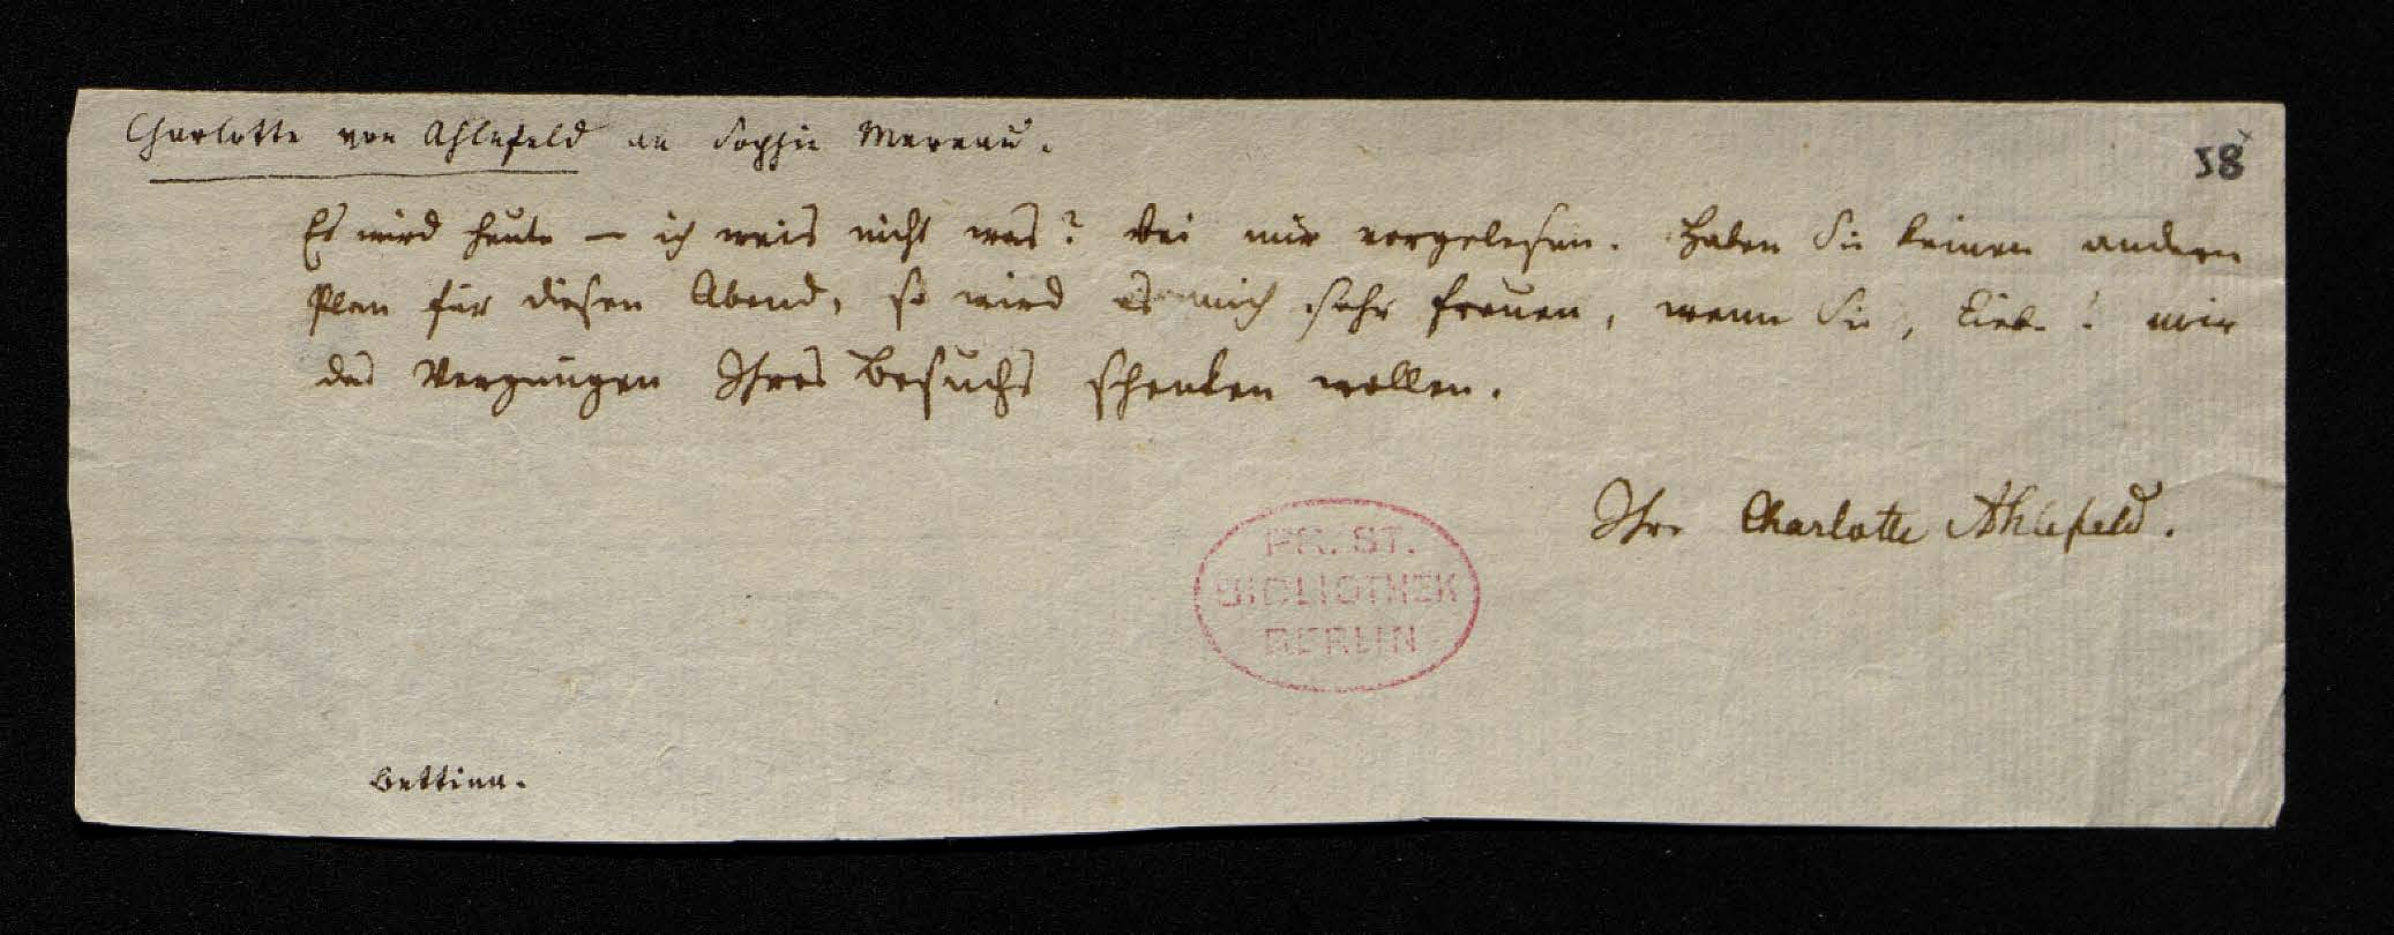 Charlotte von Ahlefeld an Sophie Mereau.
58
Es wird heute — ich weis nicht was? bei mir vorgelesen. Haben Sie keinen andern
Plan für diesen Abend, so wird es mich sehr freuen, wenn Sie, Liebe! mir
das Vergnügen Ihres Besuchs schenken wollen.
Ihre Charlotte Ahlefeld.
PR. ST.
BIBLIOTHEK
BERLIN
Bettina.